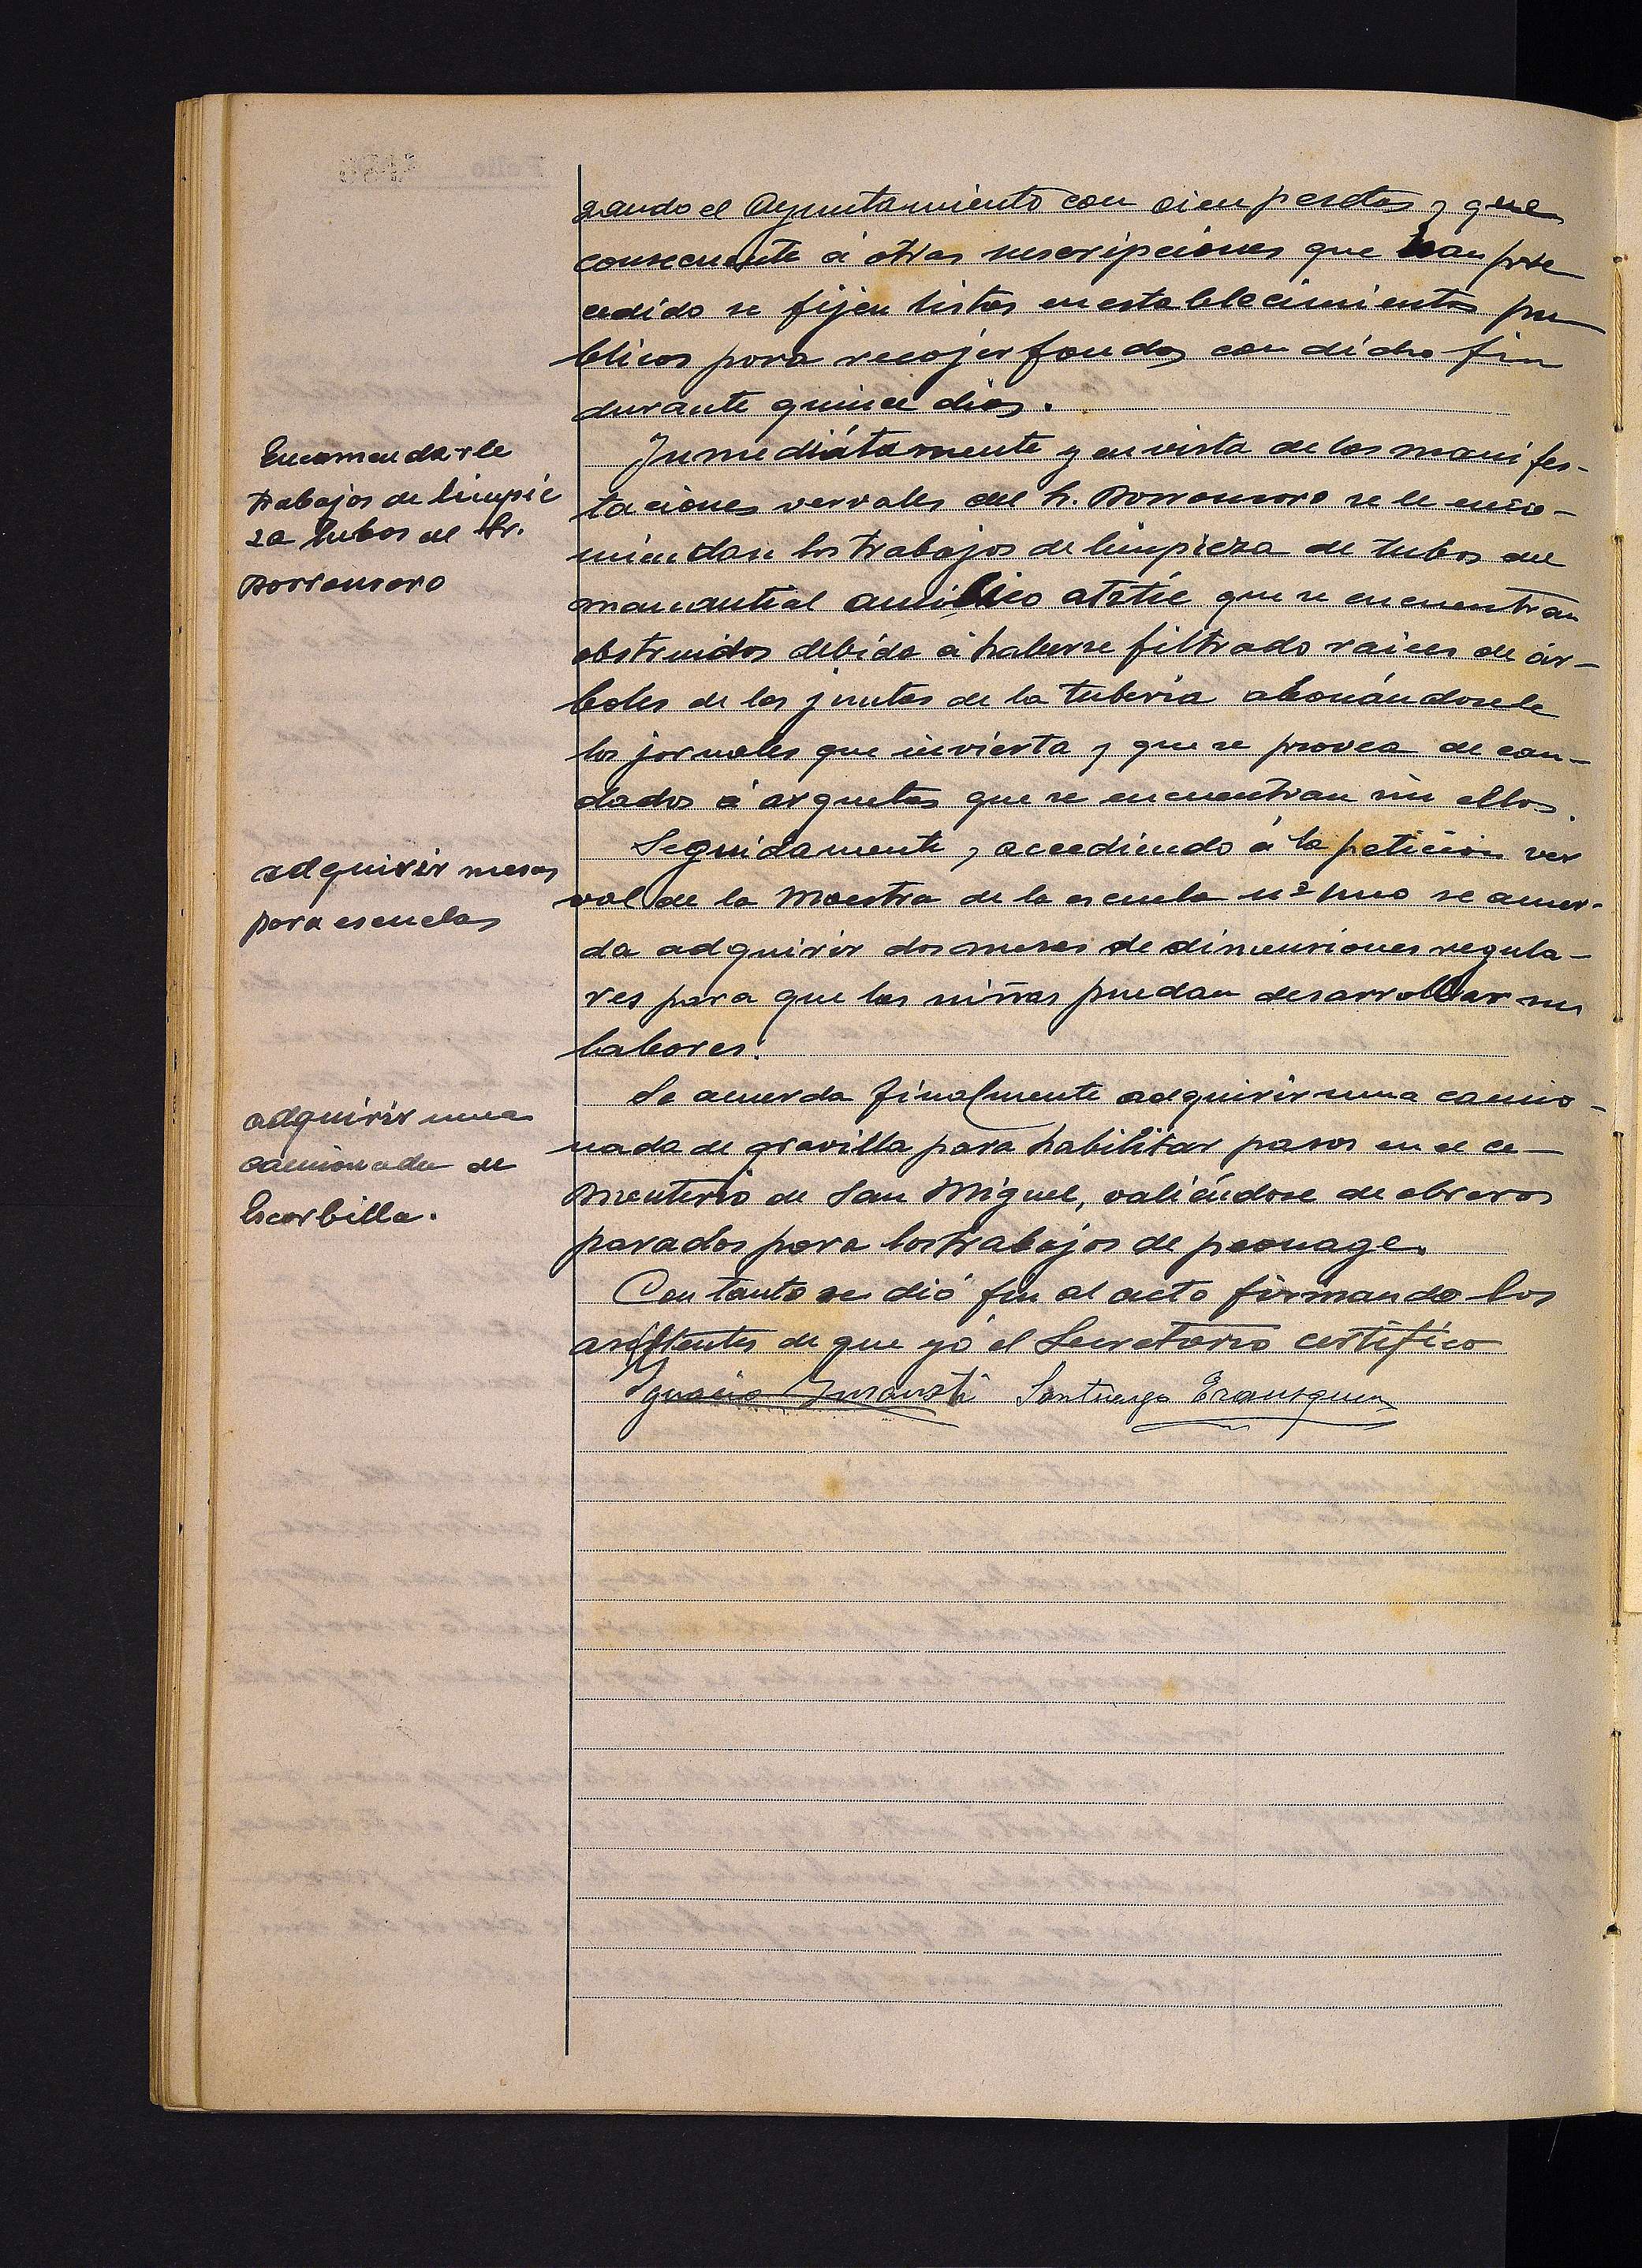 Folio
gando el Ayuntamiento con cien pesetas y que
consecuente á otras suscripciones que han pre
cedido se fijen listas en establecimientos pu
blicos para recojer fondos con dicho fin
durante quince dias.
Encomendarle
trabajos de limpie
za tubos al Sr.
Dorronsoro
Inmediátamente y en vista de las manifes-
taciones vervales del Sr. Dorronsoro se le enco-
miendan los trabajos de limpieza de tubos del
manantial que se encuentran
obstruidos debido á haberse filtrado raices de ár-
boles de las juntas de la tubería abonándosele
los jornales que invierta y que se provea de can-
dados á arquetas que se encuentran sin ellos.
adquirir mesas
para escuelas
Seguidamente, accediendo á la petición ver
val de la Maestra de la escuela nº uno se acuer-
da adquirir dos mesas de dimensiones regula-
res para que las niñas puedan desarrollar sus
labores.
adquirir una
camionada de
Escorbilla.
Se acuerda finalmente adquirir una camio-
nada de gravilla para habilitar pasos en el ce-
menterio de San Miguel, valiéndose de obreros
parados para los trabajos de peonage.
Con tanto se dió fin al acto firmando los
asistentes de que yó el Secretario certifico
Ignacio Insausti Santiago Erausquin